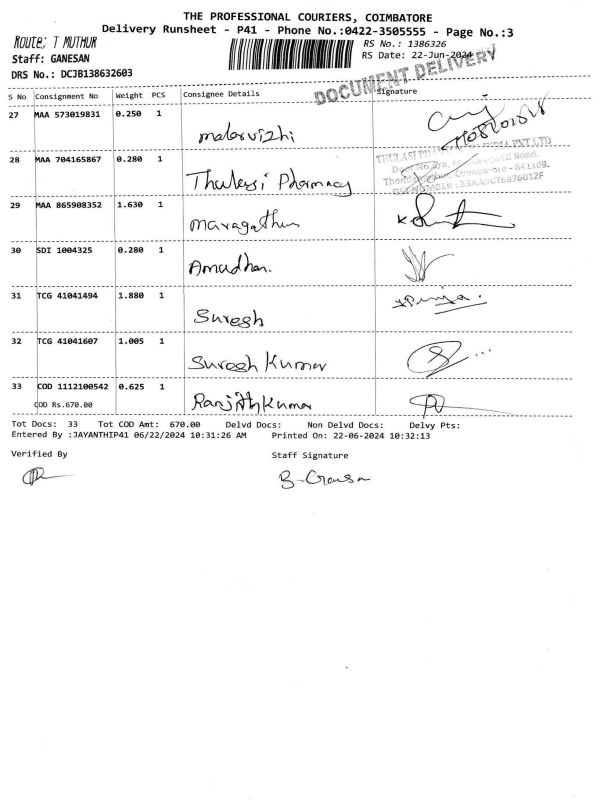 THE PROFESSIONAL COURIERS, COIMBATORE
Delivery Runsheet - P41 - Phone No.:0422-3505555 - Page No.:3
Route: T MUTHUR
RS No.: 1386326
Staff: GANESAN
RS Date: 22-Jun-2024
DRS No.: DCJB138632603
DOCUMENT DELIVERY
S No Consignment No Weight PCS Consignee Details Signature
27 MAA 573019831 0.250 1 malarvizhi
28 MAA 704165867 0.280 1 Thulasi Pharmacy
THULASI INDIA PVT LTD
Road,
Coimbatore - 641109.
29 MAA 865908352 1.630 1 maragathum
30 SDI 1004325 0.280 1 Amudhan.
31 TCG 41041494 1.880 1 Suresh
32 TCG 41041607 1.005 1 Suresh Kumar
33 COD 1112100542 0.625 1 Ranjithkumar
COD Rs.670.00
Tot Docs: 33 Tot COD Amt: 670.00 Delvd Docs: Non Delvd Docs: Delvy Pts:
Entered By :JAYANTHIP41 06/22/2024 10:31:26 AM Printed On: 22-06-2024 10:32:13
Verified By Staff Signature